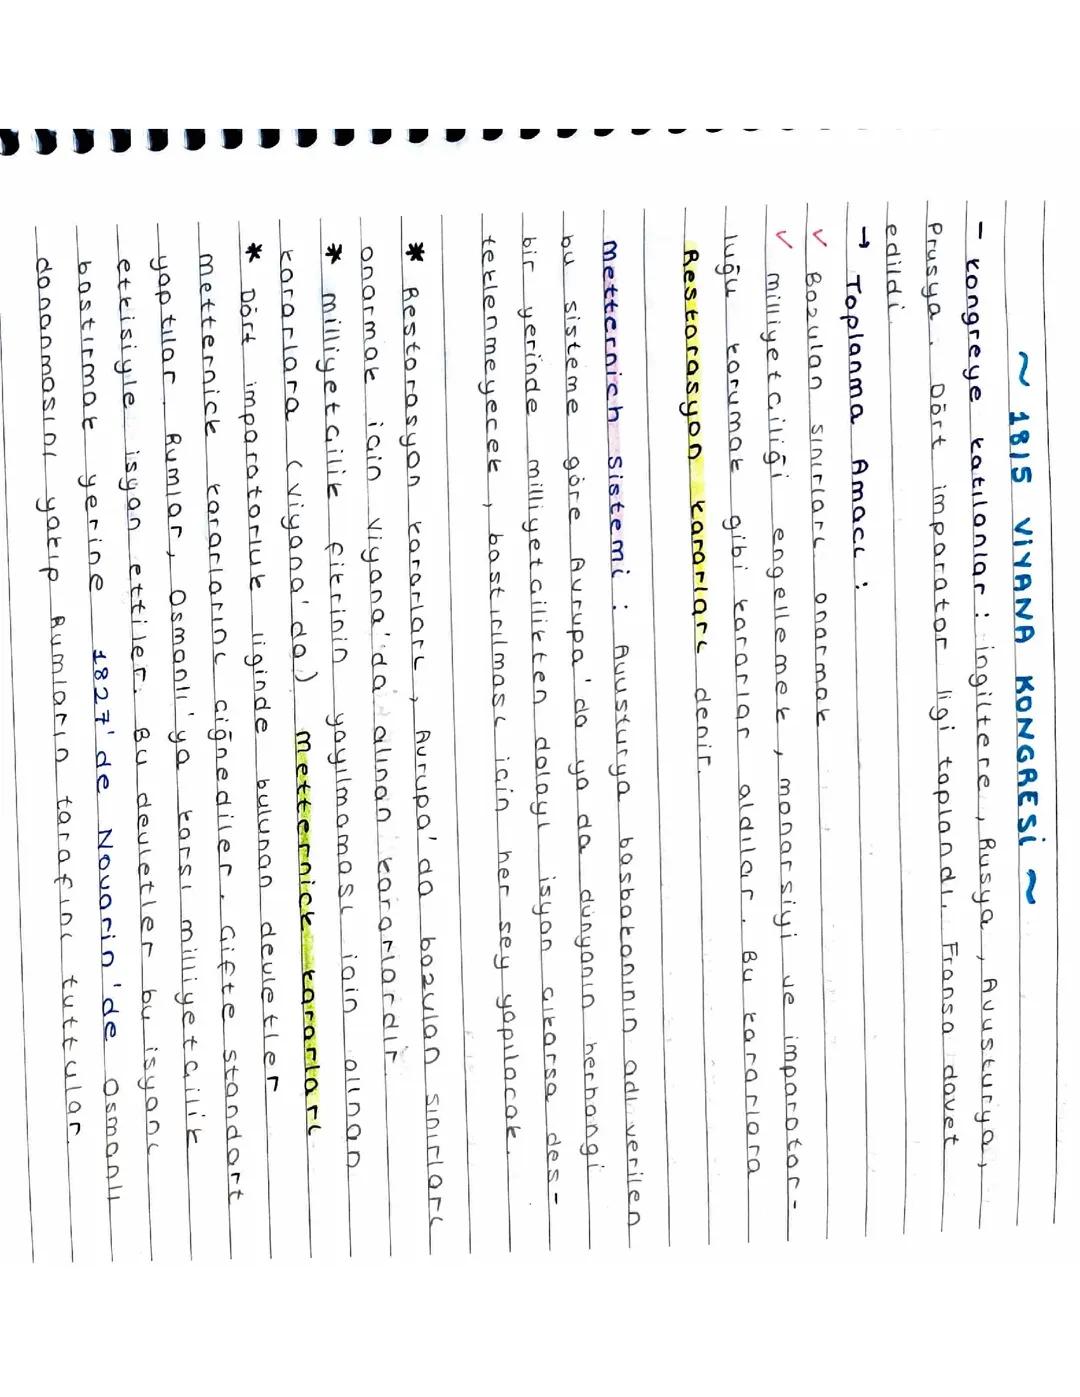 ~ 1815 VİYANA KONGRESİ ~
- Kongreye katılanlar : İngiltere, Rusya, Avusturya,
Prusya. Dört imparator ligi toplandı. Fransa davet
edildi.
→ Toplanma Amacı :
✓ Bozulan sınırları onarmak
✓ milliyetçiliği engellemek, monarşiyi ve imparator-
luğu korumak gibi kararlar aldılar. Bu kararlara
Restorasyon kararları denir.
Metternich sistemi : Avusturya başbakanının adı verilen
bu sisteme göre Avrupa'da ya da dünyanın herhangi
bir yerinde milliyetçilikten dolayı isyan çıkarsa des-
teklenmeyecek, bastırılması için her şey yapılacak.
* Restorasyon kararları, Avrupa'da bozulan sınırları
onarmak için Viyana'da alınan kararlardır.
* milliyetçilik fikrinin yayılmaması için alınan
kararlara (Viyana'da) metternick kararları
* Dört imparatorluk liginde bulunan devletler
metternick kararlarını çiğnediler. Çifte standart
yaptılar. Rumlar, Osmanlı'ya karşı milliyetçilik
etkisiyle isyan ettiler. Bu devletler bu isyanı
bastırmak yerine 1827'de Navarin'de Osmanlı
donanmasını yakıp Rumların tarafını tuttular.